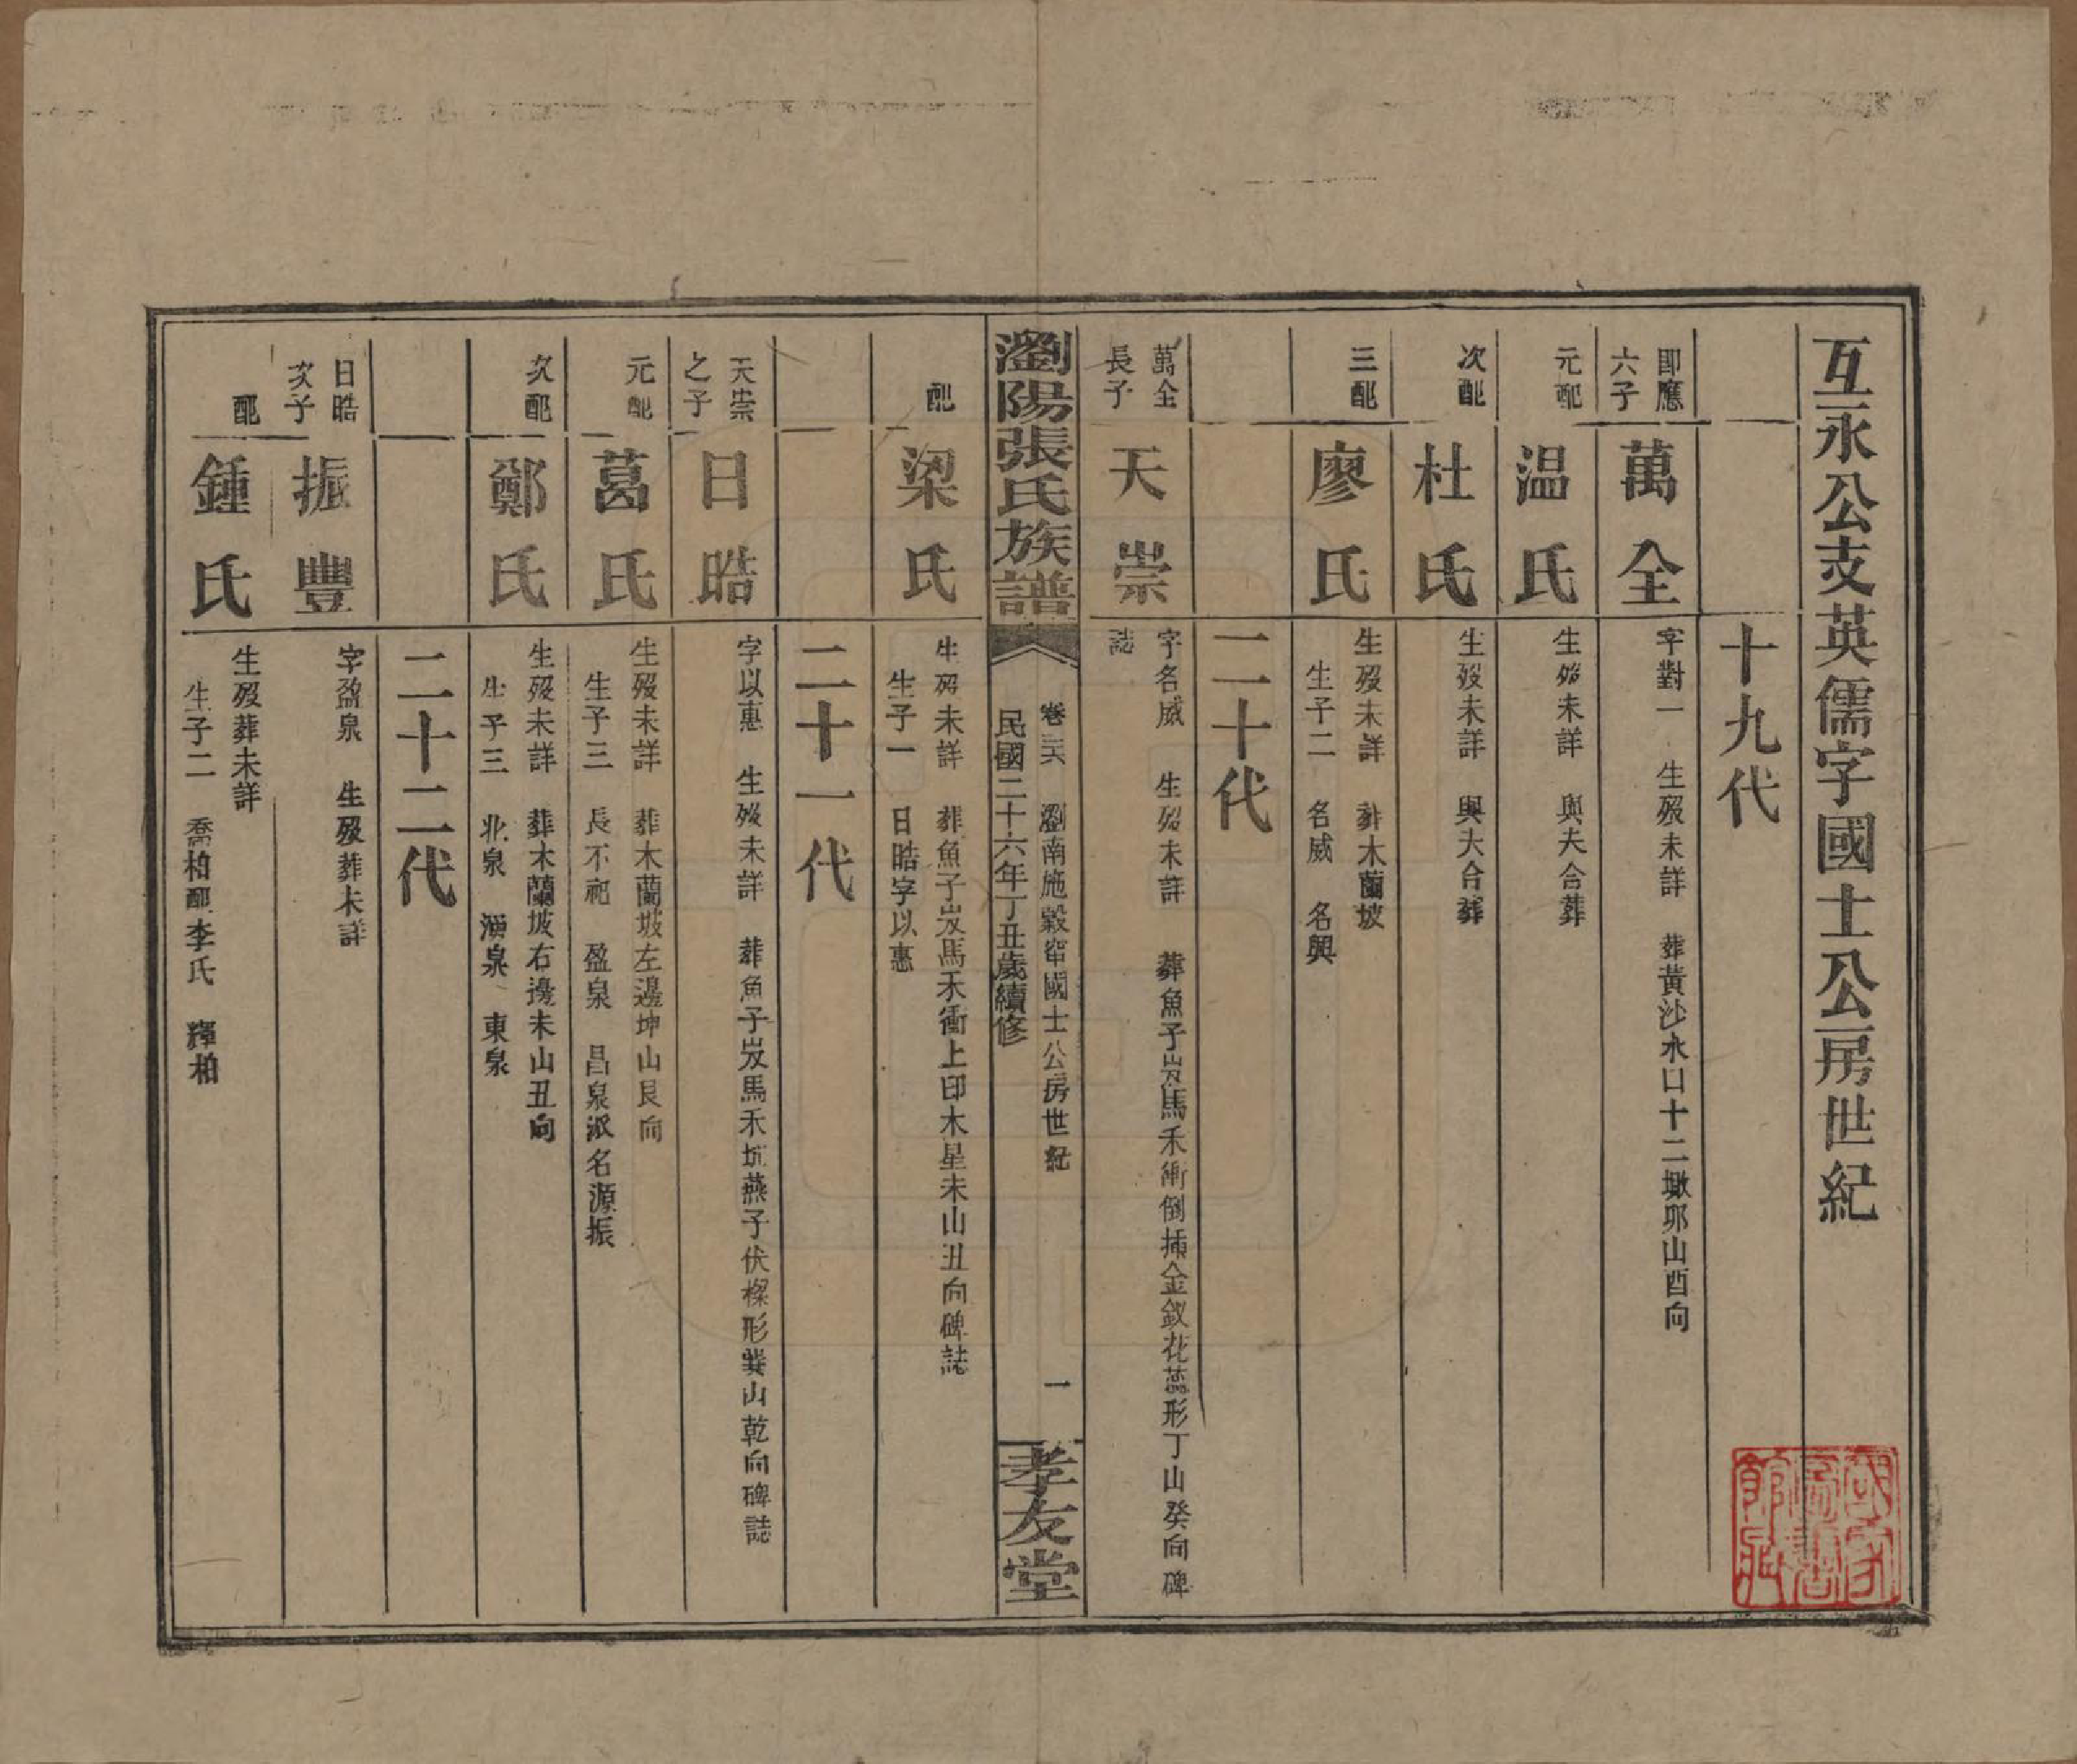 互永公支英儒字國士公房世紀
十九代
即應
六子
萬全
字對一 生歿未詳 葬黃沙水口十二墩卯山酉向
元配
温氏
生歿未詳 與夫合葬
次配
杜氏
生歿未詳 與夫合葬
三配
廖氏
生歿未詳 葬木蘭坡
生子二 名威 名興
二十代
萬全
長子
天崇
字名威 生歿未詳 葬魚子岌馬禾衝倒插金釵花蕊形丁山癸向碑
誌
瀏陽張氏族譜
卷三六 瀏南施穀窂國士公房世紀 一
民國二十六年丁丑歲續修
孝友堂
配
梁氏
生歿未詳 葬魚子岌馬禾衝上印木星未山丑向碑誌
生子一 日晧字以惠
二十一代
天崇
之子
日晧
字以惠 生歿未詳 葬魚子岌馬禾坑燕子伏樑形巽山乾向碑誌
元配
葛氏
生歿未詳 葬木蘭坡左邊坤山艮向
生子三 長不祀 盈泉 昌泉派名源振
次配
鄭氏
生歿未詳 葬木蘭坡右邊未山丑向
生子三 北泉 湧泉 東泉
二十二代
日晧
次子
振豐
字盈泉 生歿葬未詳
配
鍾氏
生歿葬未詳
生子二 喬柏配李氏 釋柏
國家
圖書
館藏